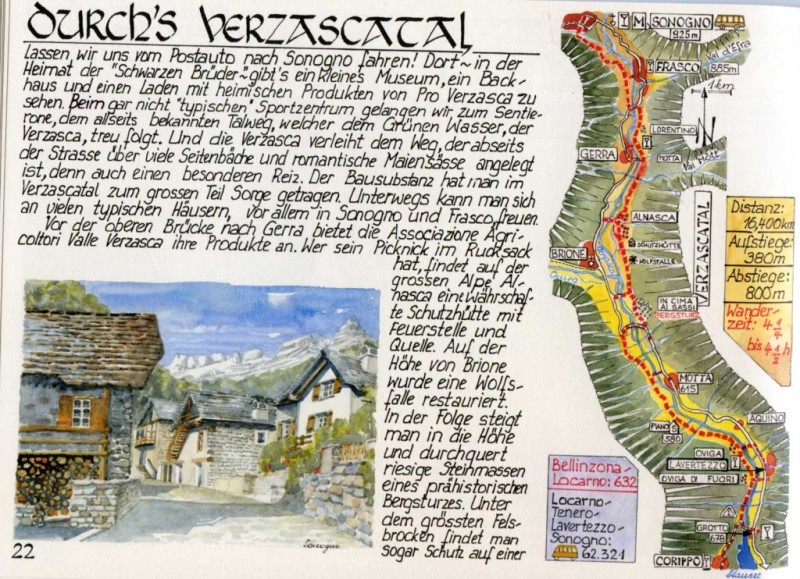 DURCH'S VERZASCATAL
Lassen wir uns vom Postauto nach Sonogno fahren! Dort ~ in der
Heimat der "Schwarzen Brüder ~ gibt's ein kleines Museum, ein Back-
haus und einen Laden mit heimischen Produkten von Pro Verzasca zu
sehen. Beim gar nicht "typischen" Sportzentrum gelangen wir zum Sentie-
rone, dem allseits bekannten Talweg, welcher dem Grünen Wasser, der
Verzasca, treu folgt. Und die Verzasca verleiht dem Weg, der abseits
der Strasse über viele Seitenbäche und romantische Maiensässe angelegt
ist, denn auch einen besonderen Reiz. Der Bausubstanz hat man im
Verzascatal zum grossen Teil Sorge getragen. Unterwegs kann man sich
an vielen typischen Häusern, vor allem in Sonogno und Frasco, freuen.
Vor der oberen Brücke nach Gerra bietet die Associazione Agri-
coltori Valle Verzasca ihre Produkte an. Wer sein Picknick im Rucksack
hat, findet auf der
grossen Alpe Al-
nasca eine währschaf-
te Schutzhütte mit
Feuerstelle und
Quelle. Auf der
Höhe von Brione
wurde eine Wolfs-
falle restauriert.
In der Folge steigt
man in die Höhe
und durchquert
riesige Steinmassen
eines prähistorischen
Bergsturzes. Unter
dem grössten Fels-
brocken findet man
sogar Schutz auf einer
Sonogno
22
M SONOGNO
925m
Val d'Efra
FRASCO
885m
1km
N
LORENTINO
GERRA
MOTTA
Val Mött
VERZASCATAL
ALNASCA
SCHUTZHÜTTE
WOLFSFALLE
BRIONE
Osura
IN CIMA
AL SASSI
BERGSTURZ
MOTTA
615
PIANO S
580
AQUINO
OVIGA
LAVERTEZZO
OVIGA DI FUORI
GROTTO
678
CORIPPO
Distanz:
16,400km
Aufstiege:
380m
Abstiege:
800m
Wander-
zeit: 4 1/4
bis 4 1/2 h
Bellinzona-
Locarno: 632
Locarno-
Tenero-
Lavertezzo-
Sonogno:
62.321